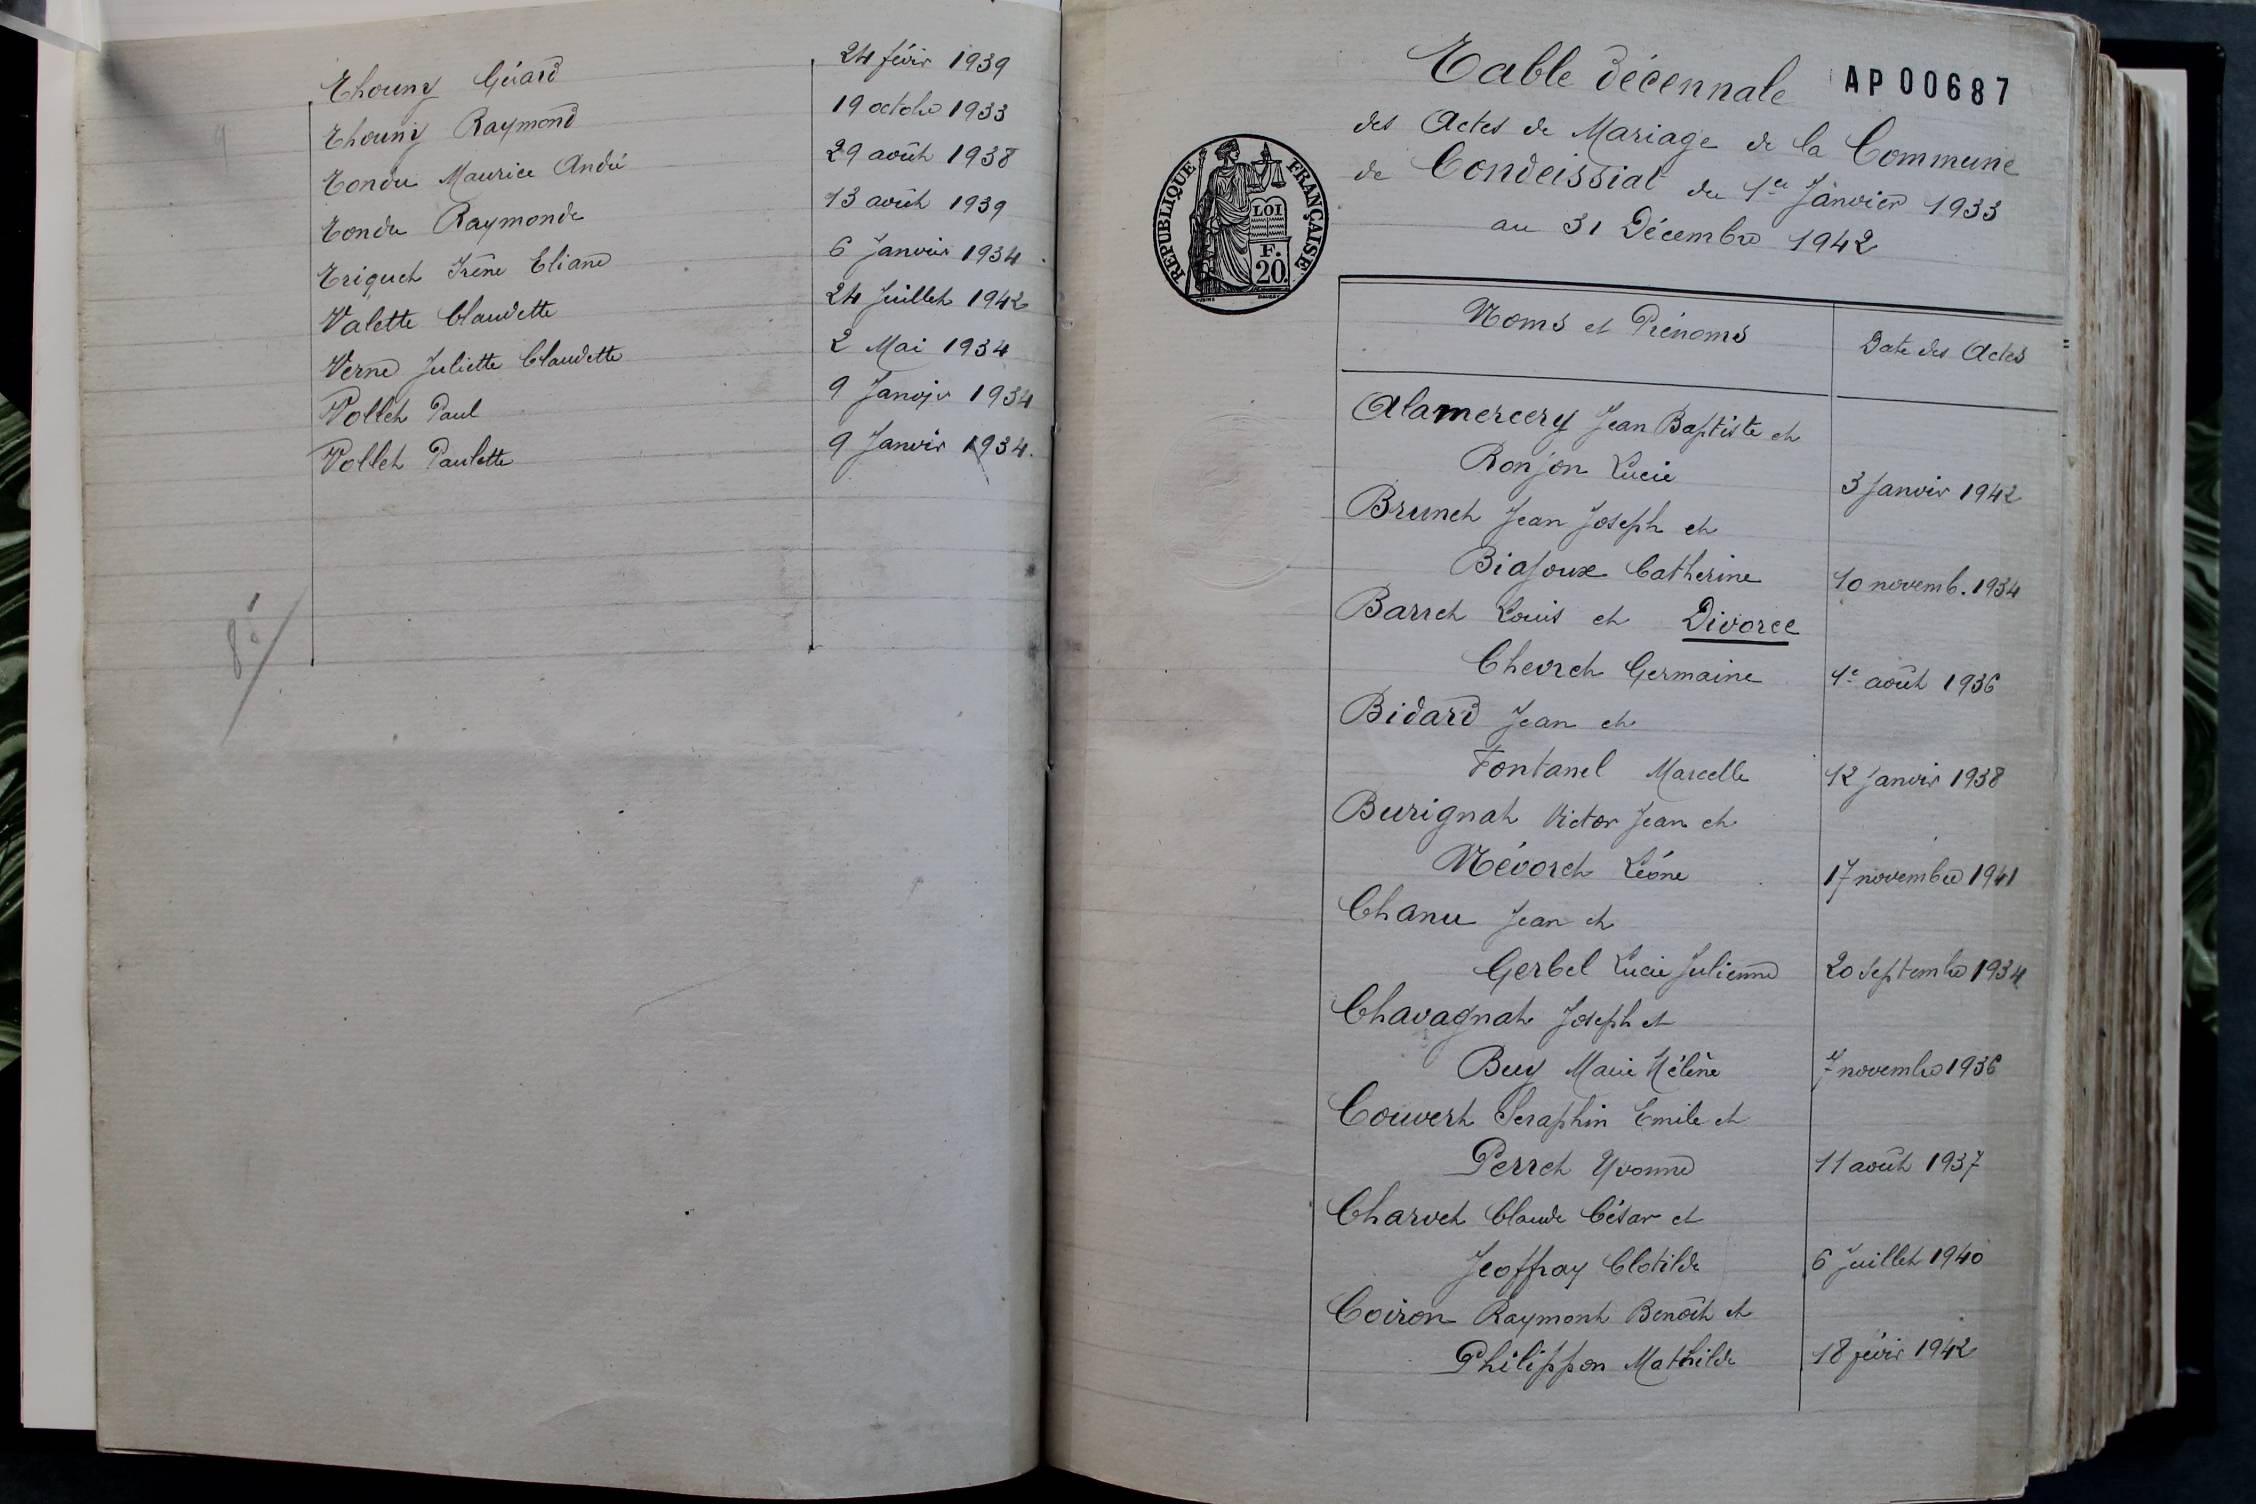 Thouny Gérard 24 févir 1939
Thouny Raymond 19 octobre 1933
Tondu Maurice André 29 août 1938
Tondu Raymonde 13 août 1939
Triquet Irène Eliane 6 Janvier 1934
Valette Claudette 24 Juillet 1942
Verne Juliette Claudette 2 Mai 1934
Vollet Paul 9 Janvier 1934
Vollet Paulette 9 Janvier 1934.
Table décennale AP00687
des Actes de Mariage de la Commune
de Condeissiat du 1er Janvier 1933
au 31 Décembre 1942
RÉPUBLIQUE FRANÇAISE
LOI
F.
20.
Noms et Prénoms Date des Actes
Alamercery Jean Baptiste et
Ronjon Lucie 3 Janvier 1942
Brunet Jean Joseph et
Biajoux Catherine 10 novemb. 1934
Barret Louis et Divorce
Chevret Germaine 1e août 1936
Bidard Jean et
Fontanel Marcelle 12 Janvier 1938
Burignat Victor Jean et
Névoret Léone 17 novembre 1941
Chanu Jean et
Gerbel Lucie Julienne 20 Septembre 1934
Chavagnat Joseph et
Buy Marie Hélène 7 novembre 1936
Couvert Seraphin Emile et
Perret Yvonne 11 août 1937
Charvet Claude César et
Jeoffray Clotilde 6 Juillet 1940
Coiron Raymont Benoît et
Philippon Mathilde 18 févir 1942